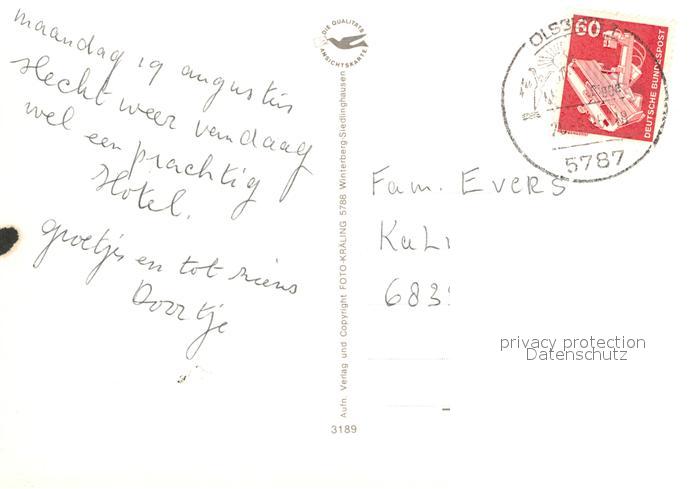 maandag 19 augustus
slecht weer vandaag
wel een prachtig
Hotel.
groetjes en tot ziens
Doortje
DIE QUALITÄTS
ANSICHTSKARTE
Aufn. Verlag und Copyright FOTO-KRALING 5788 Winterberg-Siedlinghausen
3189
60
DEUTSCHE BUNDESPOST
5787
Fam. Evers
privacy protection
Datenschutz